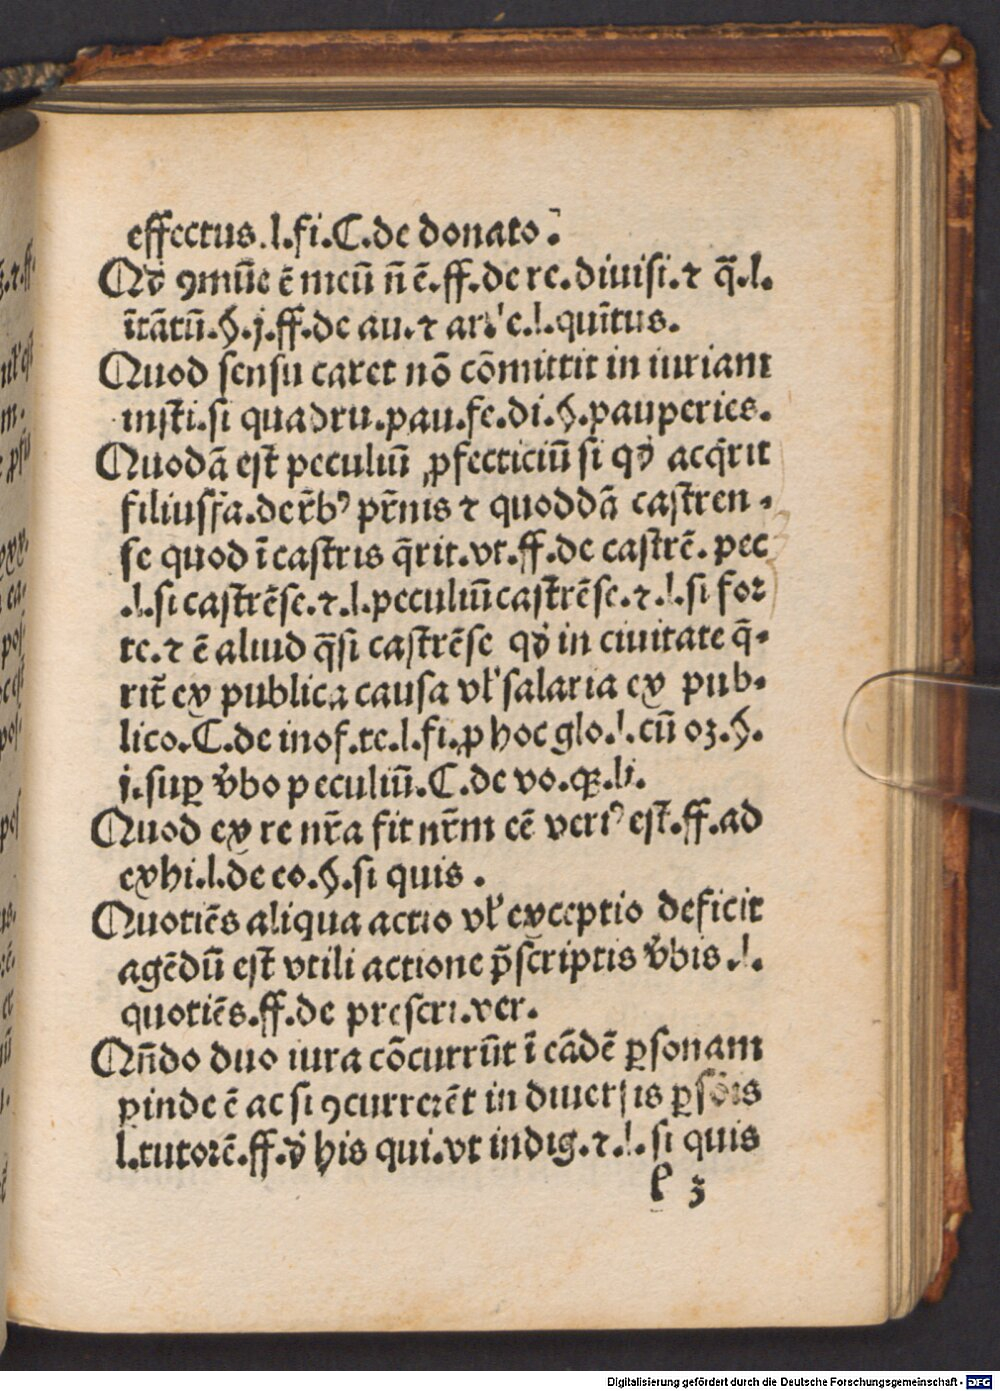 effectus.l.fi.C.de donato.
Qď ꝯmūe ē meū n̄ ē.ff.de re.diuisi.⁊ q̄.l.
ītātū.§.j.ff.de au.⁊ ar. le.l.quītus.
Quod sensu caret nō cōmittit in iuriam
insti.si quadru.pau.fe.di.§.pauperies.
Quodā est peculiū ꝓfecticiū si qď acq̄rit
filiusfa.de r̄bꝰ pr̄nis ⁊ quoddā castren-
se quod ī castris q̄rit.vt.ff.de castrē.pec
.l.si castrēse.⁊.l.peculiū castrēse.⁊.l.si for
te.⁊ ē aliud q̄si castrēse qď in ciuitate q̄-
rit ex publica causa vl' salaria ex pub-
lico.C.de inof.te.l.fi.ꝓ hoc glo.l.cū oꝫ.§.
j.suꝑ v̄bo peculiū.C.de vo.qꝫ.li.
Quod ex re nr̄a fit nr̄m eē verıꝰ est.ff.ad
exhi.l.de eo.§.si quis.
Quotiēs aliqua actio vl' exceptio deficit
agēdū est vtili actione p̄scriptis v̄bis.l.
quotiēs.ff.de prescri.ver.
Qn̄do duo iura cōcurrūt ī eādē ꝑsonam
ꝑinde ē ac si ꝯcurrerēt in diuersis ꝑsōis
l.tutorē.ff.ď his qui.vt indig.⁊.l.si quis
l 3
Digitalisierung gefördert durch die Deutsche Forschungsgemeinschaft - DFG